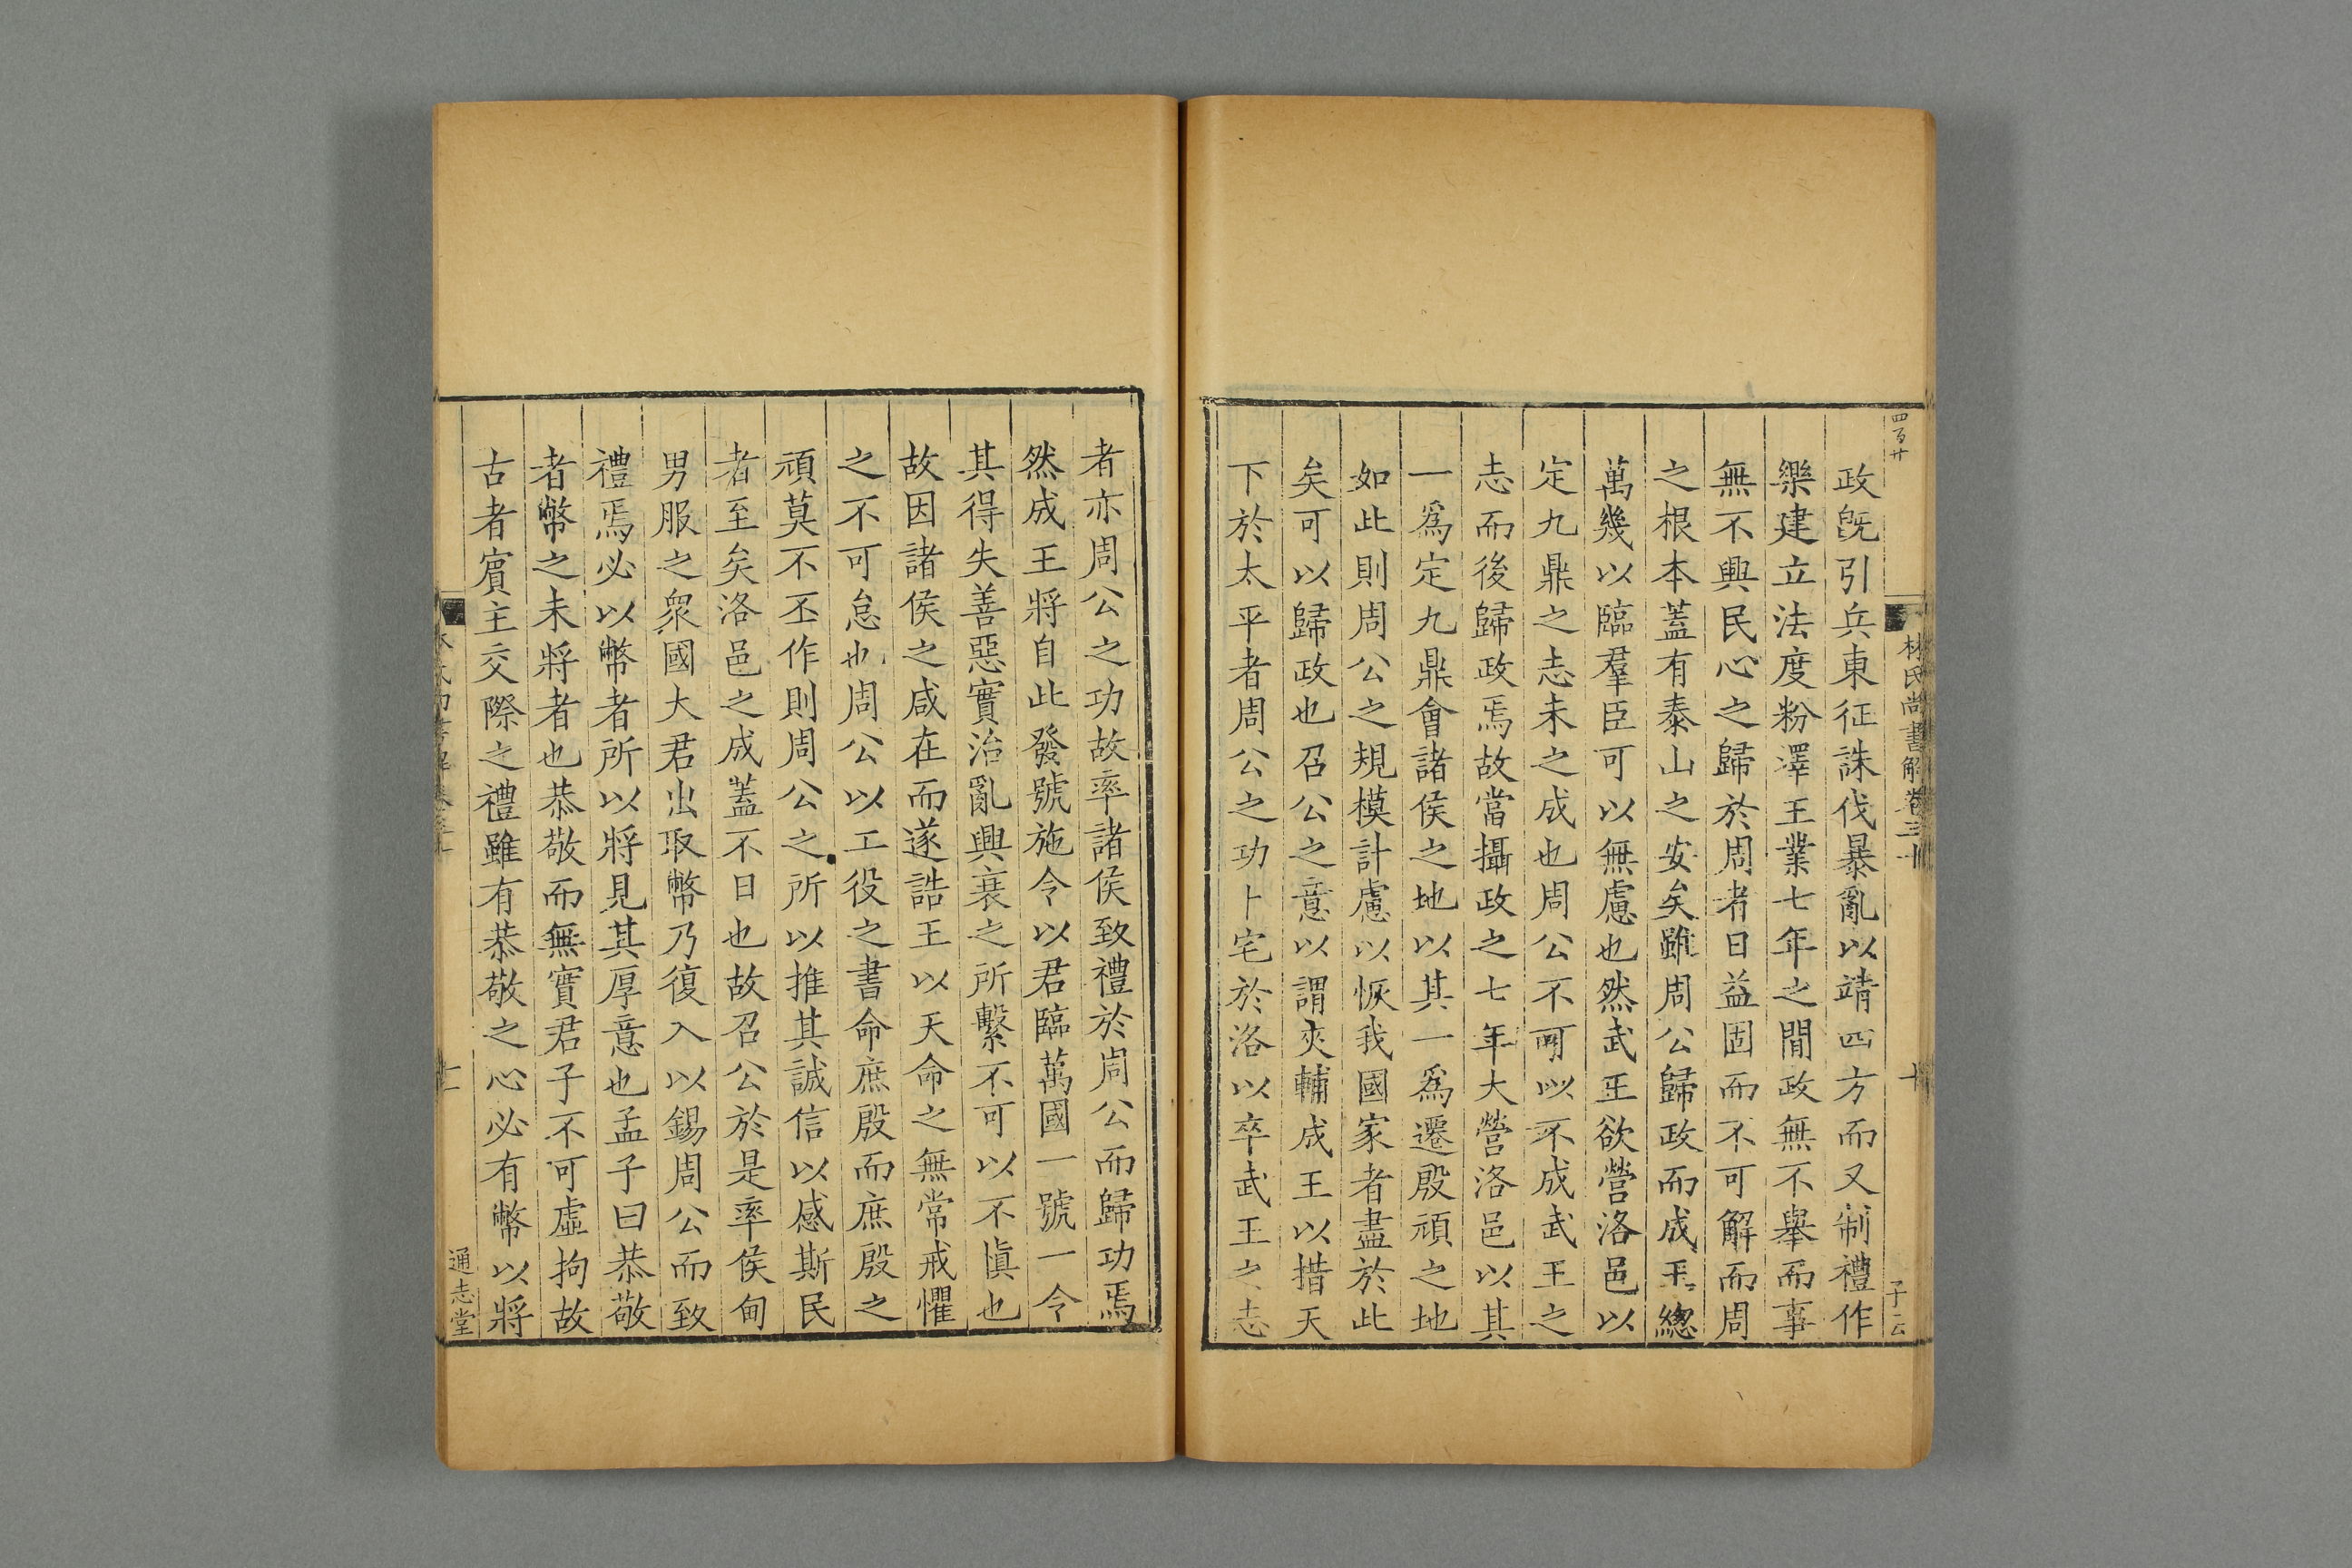 四百廿
林氏尚書解卷三十
十
子云
政旣引兵東征誅伐暴亂以靖四方而又制禮作
樂建立法度粉澤王業七年之間政無不舉而事
無不興民心之歸於周者日益固而不可解而周
之根本蓋有泰山之安矣雖周公歸政而成王總
萬幾以臨羣臣可以無慮也然武王欲營洛邑以
定九鼎之志未之成也周公不可以不成武王之
志而後歸政焉故當攝政之七年大營洛邑以其
一爲定九鼎會諸侯之地以其一爲遷殷頑之地
如此則周公之規模計慮以恢我國家者盡於此
矣可以歸政也召公之意以謂夾輔成王以措天
下於太平者周公之功卜宅於洛以卒武王之志
者亦周公之功故率諸侯致禮於周公而歸功焉
然成王將自此發號施令以君臨萬國一號一令
其得失善惡實治亂興衰之所繫不可以不愼也
故因諸侯之咸在而遂誥王以天命之無常戒懼
之不可怠也周公以工役之書命庶殷而庶殷之
頑莫不丕作則周公之所以推其誠信以感斯民
者至矣洛邑之成蓋不日也故召公於是率侯甸
男服之衆國大君出取幣乃復入以錫周公而致
禮焉必以幣者所以將見其厚意也孟子曰恭敬
者幣之未將者也恭敬而無實君子不可虛拘故
古者賓主交際之禮雖有恭敬之心必有幣以將
通志堂